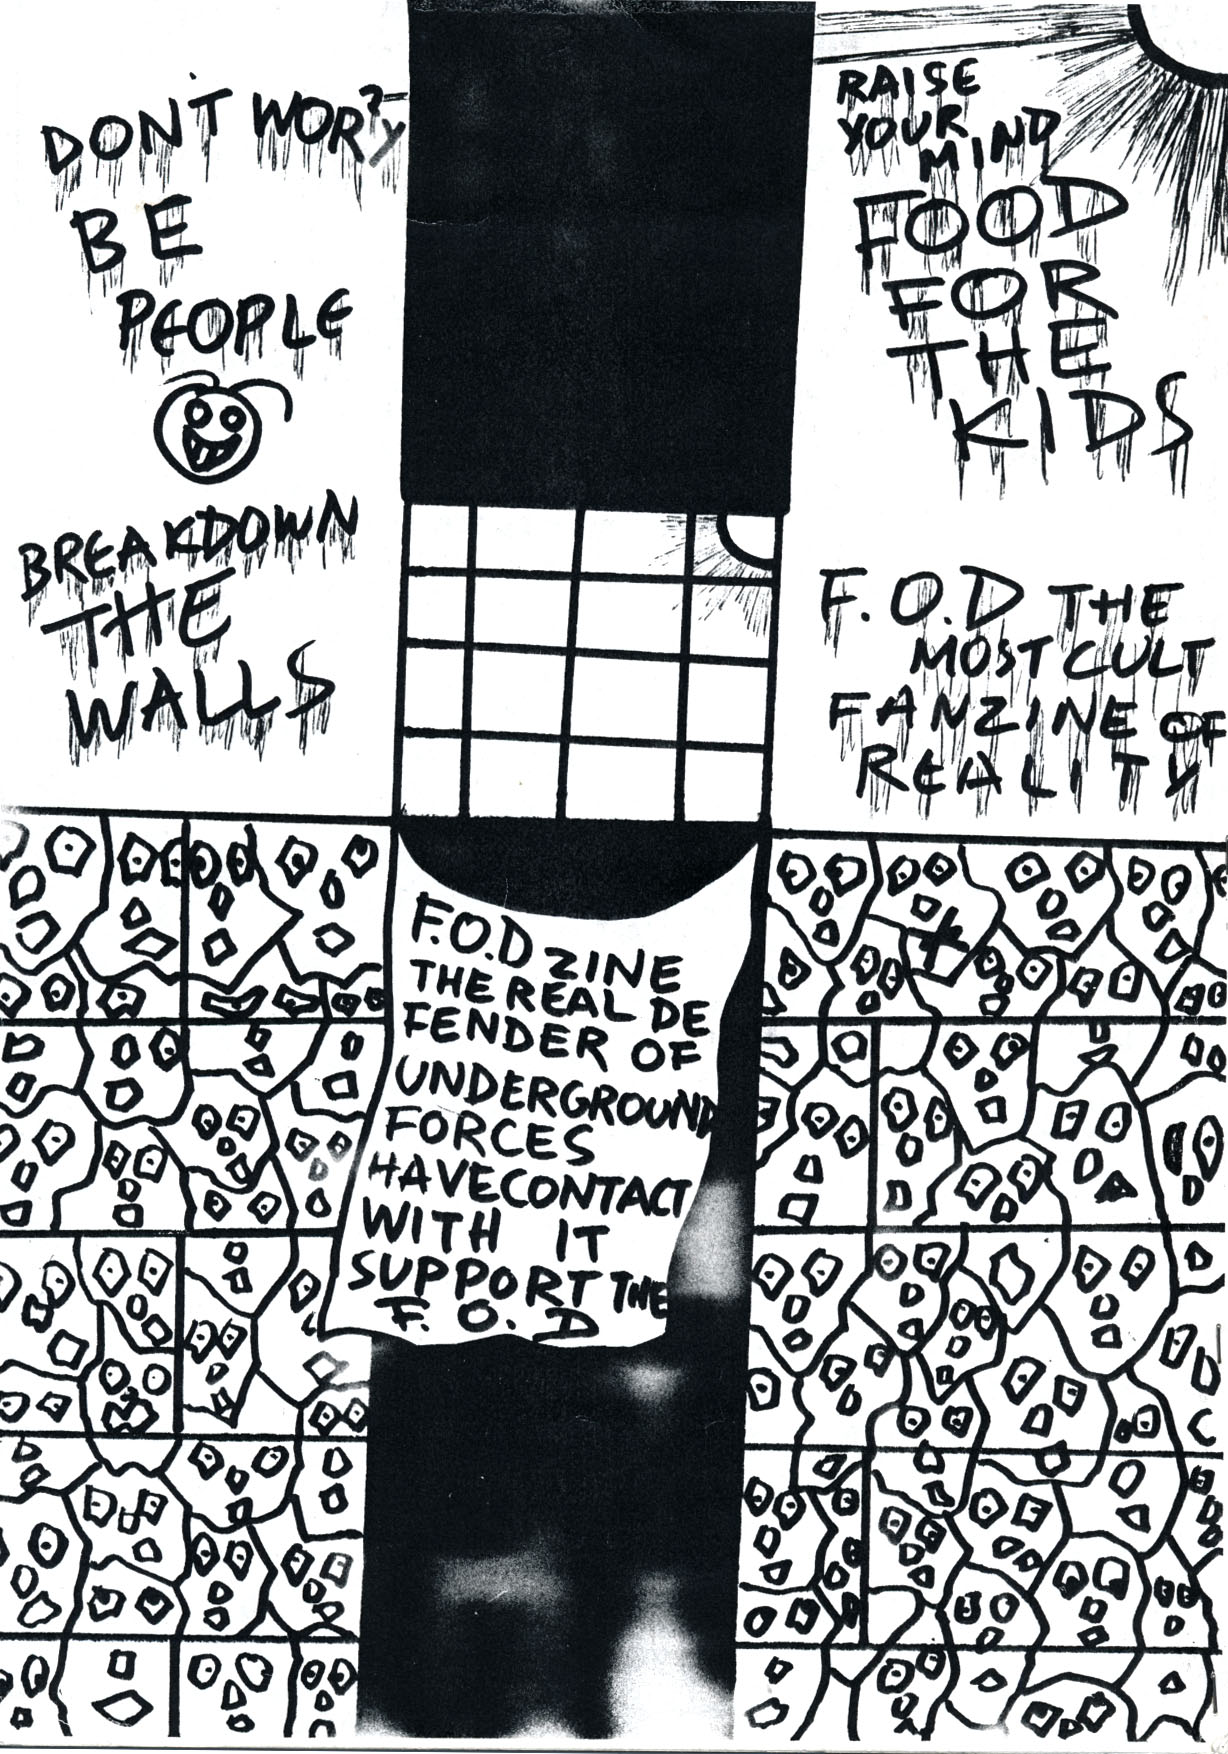 DON'T WOR?Y
BE
PEOPLE
BREAKDOWN
THE
WALLS
RAISE
YOUR
MIND
FOOD
FOR
THE
KIDS
F.O.D THE
MOST CULT
FANZINE OF
REALITY
F.O.D ZINE
THE REAL DE
FENDER OF
UNDERGROUND
FORCES
HAVE CONTACT
WITH IT
SUPPORT THE
F.O.D